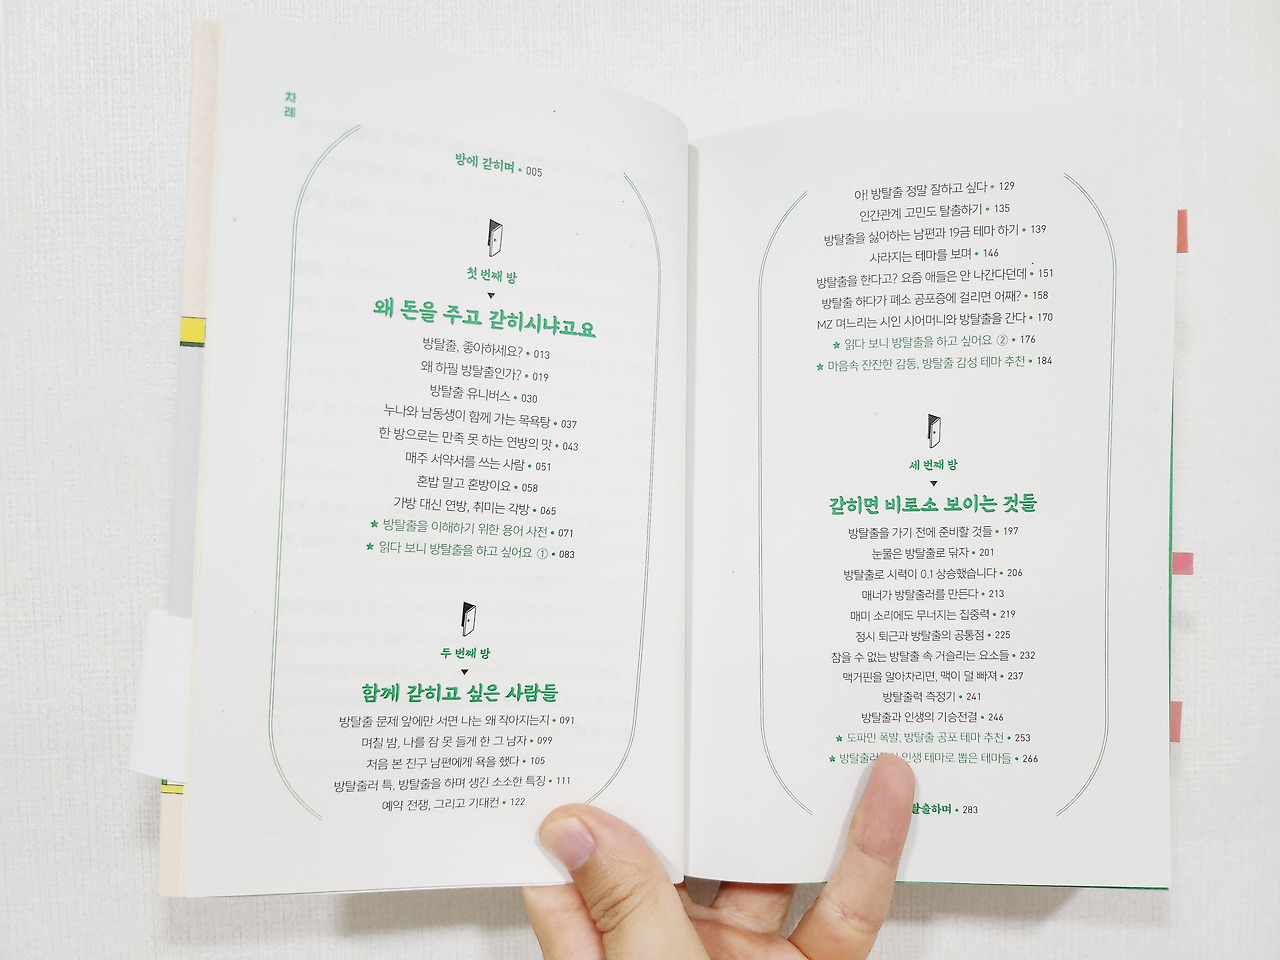 차례
방에 갇히며 • 005
첫 번째 방
왜 돈을 주고 갇히시냐고요
방탈출, 좋아하세요? • 013
왜 하필 방탈출인가? • 019
방탈출 유니버스 • 030
누나와 남동생이 함께 가는 목욕탕 • 037
한 방으로는 만족 못 하는 연방의 맛 • 043
매주 서약서를 쓰는 사람 • 051
혼밥 말고 혼방이요 • 058
가방 대신 연방, 취미는 각방 • 065
★ 방탈출을 이해하기 위한 용어 사전 • 071
★ 읽다 보니 방탈출을 하고 싶어요 ① • 083
두 번째 방
함께 갇히고 싶은 사람들
방탈출 문제 앞에만 서면 나는 왜 작아지는지 • 091
며칠 밤, 나를 잠 못 들게 한 그 남자 • 099
처음 본 친구 남편에게 욕을 했다 • 105
방탈출러 특, 방탈출을 하며 생긴 소소한 특징 • 111
예약 전쟁, 그리고 기대컨 • 122
아! 방탈출 정말 잘하고 싶다 • 129
인간관계 고민도 탈출하기 • 135
방탈출을 싫어하는 남편과 19금 테마 하기 • 139
사라지는 테마를 보며 • 146
방탈출을 한다고? 요즘 애들은 안 나간다던데 • 151
방탈출 하다가 폐소 공포증에 걸리면 어째? • 158
MZ 며느리는 시인 시어머니와 방탈출을 간다 • 170
★ 읽다 보니 방탈출을 하고 싶어요 ② • 176
★ 마음속 잔잔한 감동, 방탈출 감성 테마 추천 • 184
세 번째 방
갇히면 비로소 보이는 것들
방탈출을 가기 전에 준비할 것들 • 197
눈물은 방탈출로 닦자 • 201
방탈출로 시력이 0.1 상승했습니다 • 206
매너가 방탈출러를 만든다 • 213
매미 소리에도 무너지는 집중력 • 219
정시 퇴근과 방탈출의 공통점 • 225
참을 수 없는 방탈출 속 거슬리는 요소들 • 232
맥거핀을 알아차리면, 맥이 덜 빠져 • 237
방탈출력 측정기 • 241
방탈출과 인생의 기승전결 • 246
★ 도파민 폭발, 방탈출 공포 테마 추천 • 253
★ 인생 테마로 뽑은 테마들 • 266
탈출하며 • 283